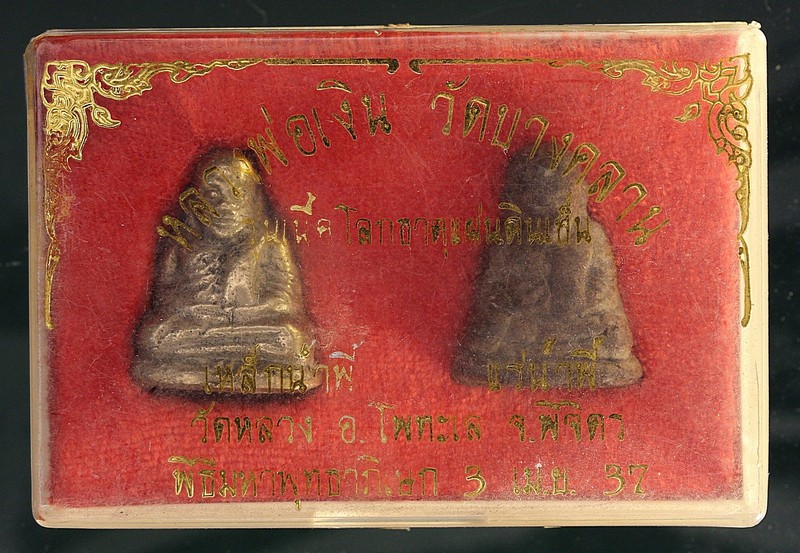 หลวงพ่อเงิน วัดบางคลาน
โลกธาตุแผ่นดินเย็น
เหล็กน้ำพี้ แร่น้ำพี้
วัดหลวง อ.โพทะเล จ.พิจิตร
พิธีมหาพุทธาภิเษก 3 เม.ย. 37